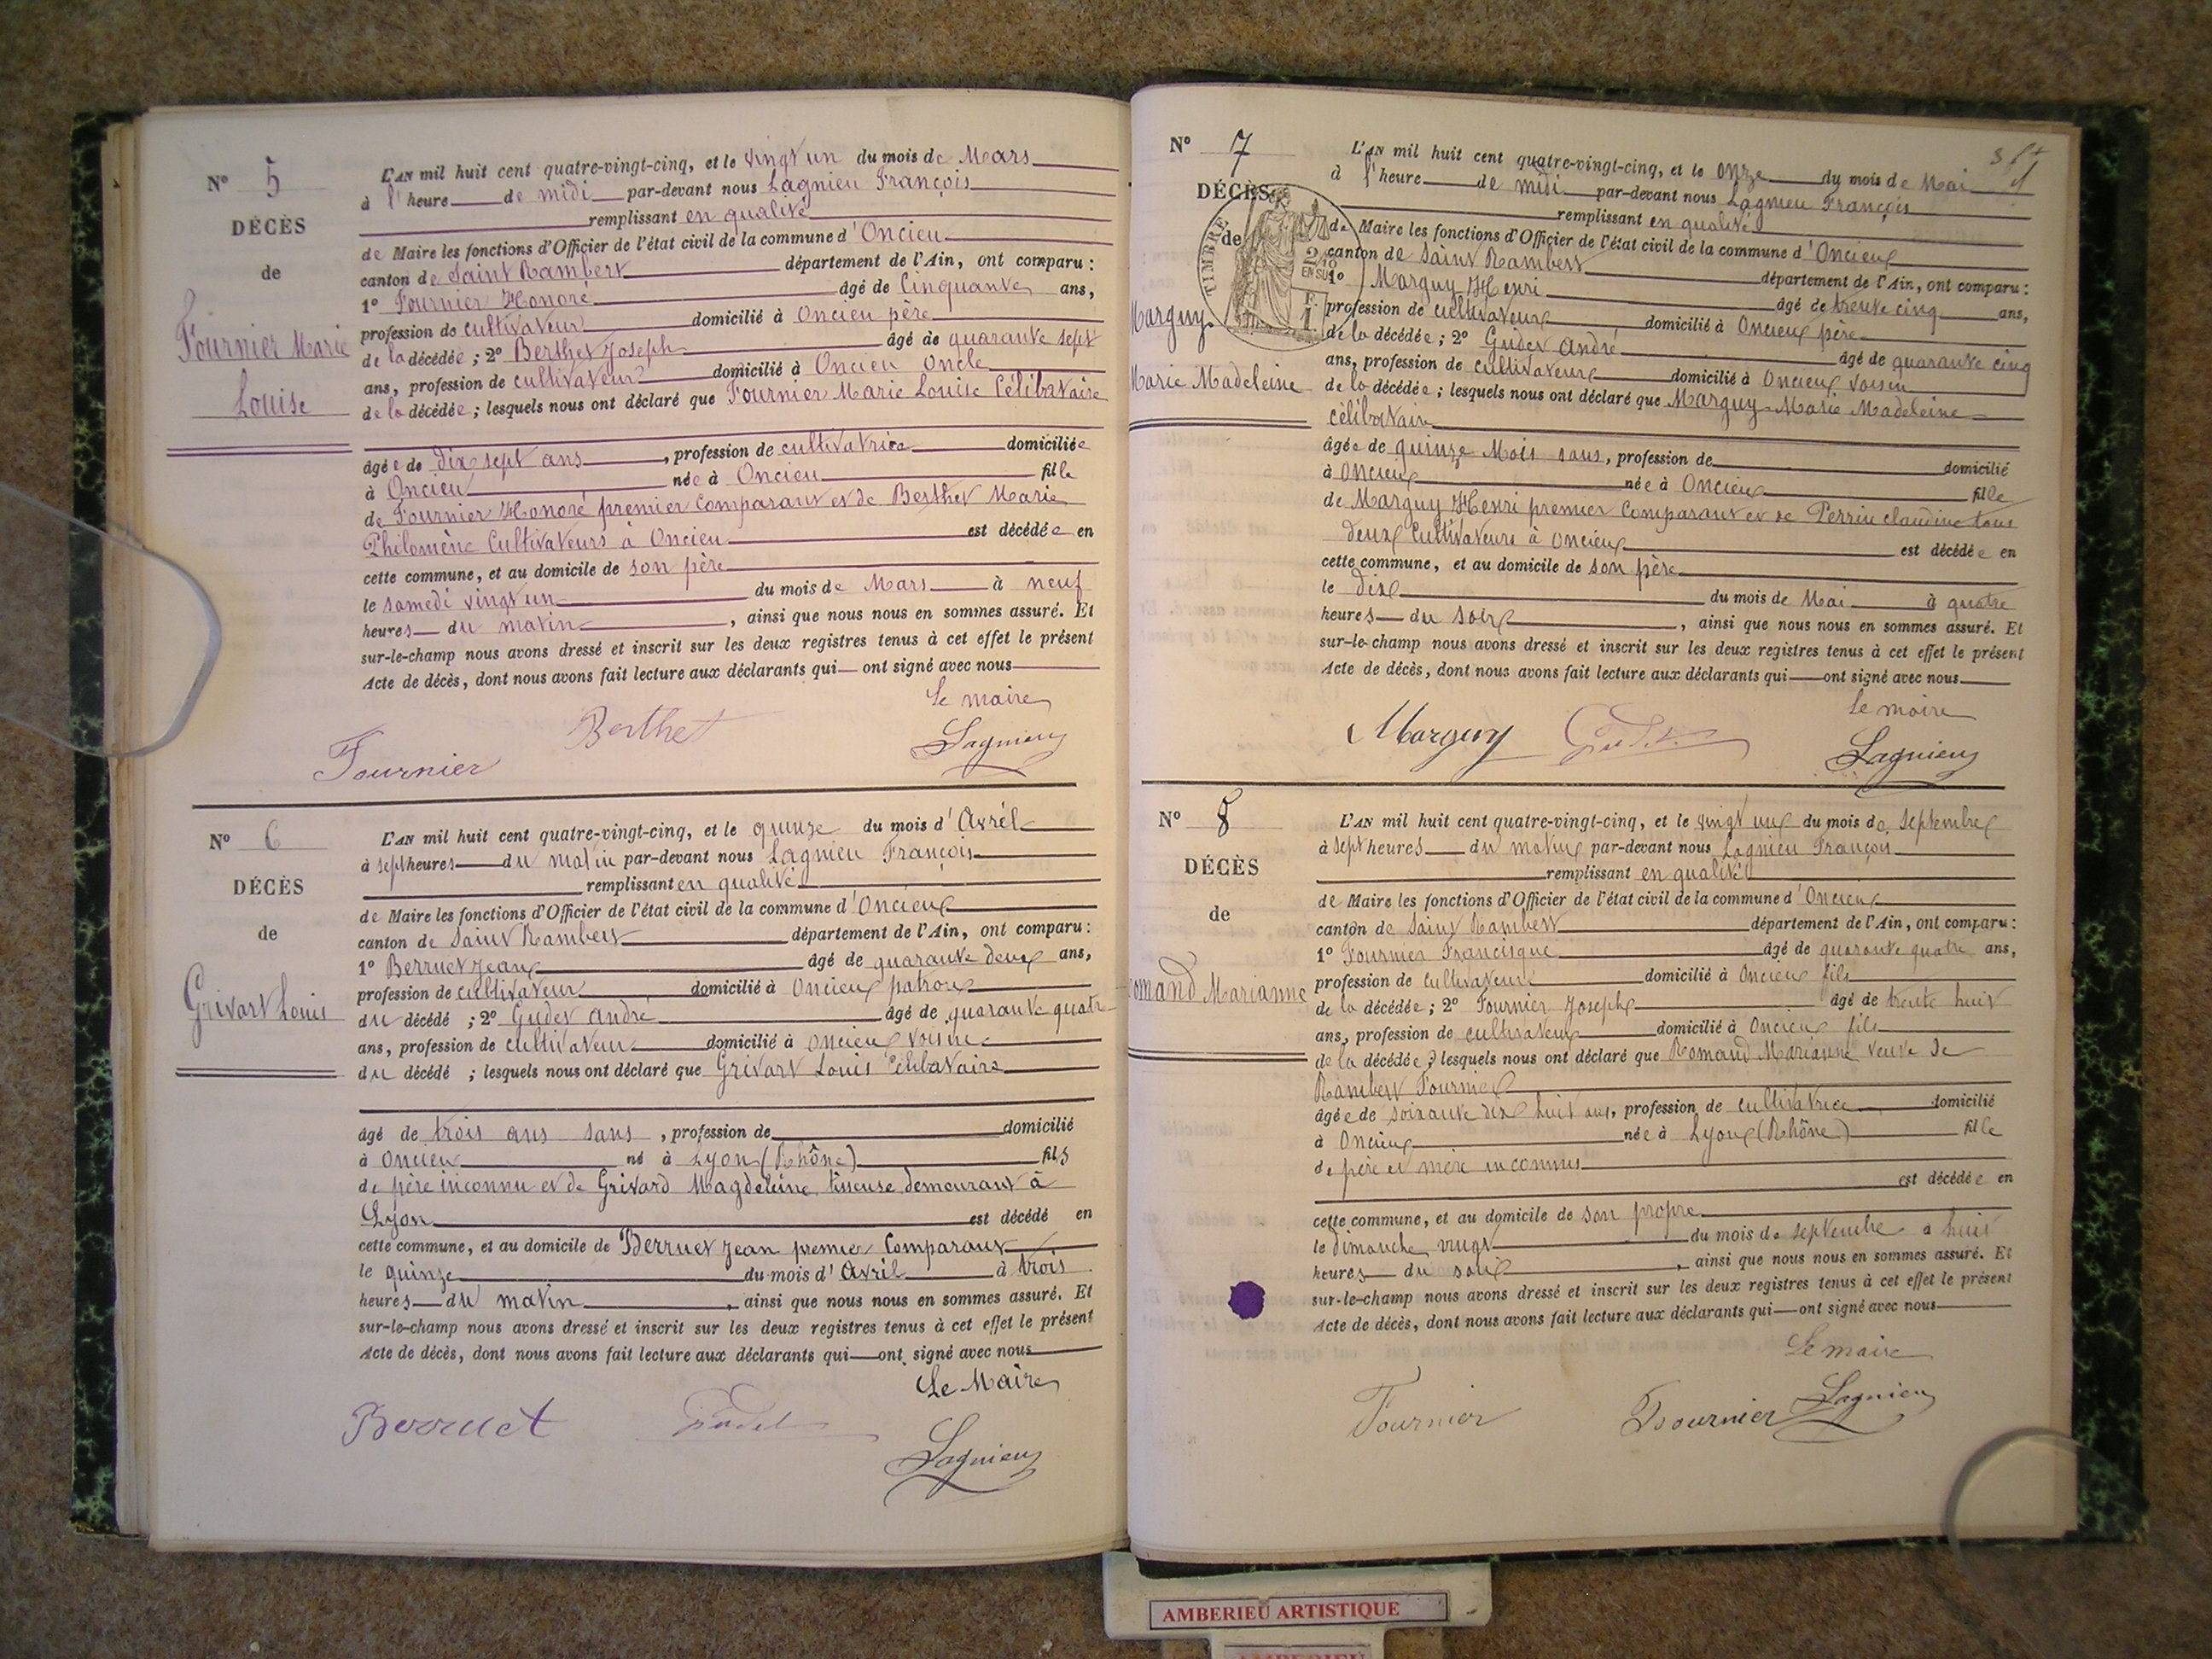 N° 5
DÉCÈS
de
Fournier Marie
Louise
L'AN mil huit cent quatre-vingt-cinq, et le vingt un du mois de Mars
à l'heure de midi par-devant nous Lagnieu François
remplissant en qualité
de Maire les fonctions d'Officier de l'état civil de la commune d'Oncieu
canton de Saint Rambert département de l'Ain, ont comparu :
1° Fournier Honoré âgé de Cinquante ans,
profession de cultivateur domicilié à Oncieu père
de la décédée ; 2° Berthet Joseph âgé de quarante sept
ans, profession de cultivateur domicilié à Oncieu oncle
de la décédée ; lesquels nous ont déclaré que Fournier Marie Louise Célibataire
âgée de dix sept ans , profession de cultivatrice domiciliée
à Oncieu née à Oncieu fille
de Fournier Honoré premier Comparant et de Berthet Marie
Philomène Cultivateurs à Oncieu est décédée en
cette commune, et au domicile de son père
le samedi vingt un du mois de Mars à neuf
heures du matin , ainsi que nous nous en sommes assuré. Et
sur-le-champ nous avons dressé et inscrit sur les deux registres tenus à cet effet le présent
Acte de décès, dont nous avons fait lecture aux déclarants qui ont signé avec nous
Le maire
Berthet
Lagnieu
Fournier
N° 6
DÉCÈS
de
Grivart Louis
L'AN mil huit cent quatre-vingt-cinq, et le quinze du mois d'Avril
à sept heures du matin par-devant nous Lagnieu François
remplissant en qualité
de Maire les fonctions d'Officier de l'état civil de la commune d'Oncieu
canton de Saint Rambert département de l'Ain, ont comparu :
1° Berruet Jean âgé de quarante deux ans,
profession de cultivateur domicilié à Oncieu patron
du décédé ; 2° Gudet André âgé de quarante quatre
ans, profession de cultivateur domicilié à Oncieu voisin
du décédé ; lesquels nous ont déclaré que Grivart Louis Célibataire
âgé de trois ans sans , profession de domicilié
à Oncieu né à Lyon (Rhône) fils
de père inconnu et de Grivard Magdeleine tisseuse demeurant à
Lyon est décédé en
cette commune, et au domicile de Berruet Jean premier Comparant
le quinze du mois d'Avril à trois
heures du matin , ainsi que nous nous en sommes assuré. Et
sur-le-champ nous avons dressé et inscrit sur les deux registres tenus à cet effet le présent
Acte de décès, dont nous avons fait lecture aux déclarants qui ont signé avec nous
Le Maire
Berruet
Gudet
Lagnieu
N° 7
DÉCÈS
de
TIMBRE
Marguy
Marie Madeleine
L'AN mil huit cent quatre-vingt-cinq, et le onze du mois de Mai
à l'heure de midi par-devant nous Lagnieu François
remplissant en qualité
de Maire les fonctions d'Officier de l'état civil de la commune d'Oncieu
canton de Saint Rambert département de l'Ain, ont comparu :
1° Marguy Henri âgé de trente cinq ans,
profession de cultivateur domicilié à Oncieu père
de la décédée ; 2° Gudet André âgé de quarante cinq
ans, profession de cultivateur domicilié à Oncieu voisin
de la décédée ; lesquels nous ont déclaré que Marguy Marie Madeleine
célibatair
âgée de quinze Mois sans, profession de domicilié
à Oncieu née à Oncieu fille
de Marguy Henri premier Comparant et de Perrin claudine tous
deux Cultivateurs à Oncieu est décédée en
cette commune, et au domicile de son père
le dix du mois de Mai à quatre
heures du soir , ainsi que nous nous en sommes assuré. Et
sur-le-champ nous avons dressé et inscrit sur les deux registres tenus à cet effet le présent
Acte de décès, dont nous avons fait lecture aux déclarants qui ont signé avec nous
Le maire
Marguy
Gudet
Lagnieu
N° 8
DÉCÈS
de
omand Marianne
L'AN mil huit cent quatre-vingt-cinq, et le vingt un du mois de Septembre
à sept heures du matin par-devant nous Lagnieu François
remplissant en qualité
de Maire les fonctions d'Officier de l'état civil de la commune d'Oncieu
canton de Saint Rambert département de l'Ain, ont comparu :
1° Fournier Francisque âgé de quarante quatre ans,
profession de cultivateur domicilié à Oncieu fils
de la décédée ; 2° Fournier Joseph âgé de trente huit
ans, profession de cultivateur domicilié à Oncieu fils
de la décédée ; lesquels nous ont déclaré que Romand Marianne veuve de
Rambert Fournier
âgée de soixante dix huit ans, profession de cultivatrice domicilié
à Oncieu née à Lyon (Rhône) fille
de père et mère inconnus
est décédée en
cette commune, et au domicile de son propre
le dimanche vingt du mois de septembre à huit
heures du soir , ainsi que nous nous en sommes assuré. Et
sur-le-champ nous avons dressé et inscrit sur les deux registres tenus à cet effet le présent
Acte de décès, dont nous avons fait lecture aux déclarants qui ont signé avec nous
Le maire
Fournier
Fournier
Lagnieu
AMBERIEU ARTISTIQUE
AMBERIEU